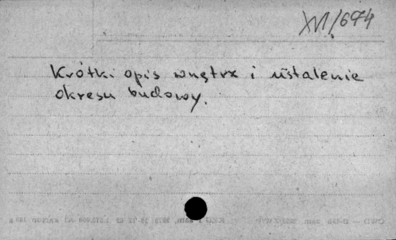 XVI/674
Krótki opis wnętrz i ustalenie
okresu budowy.